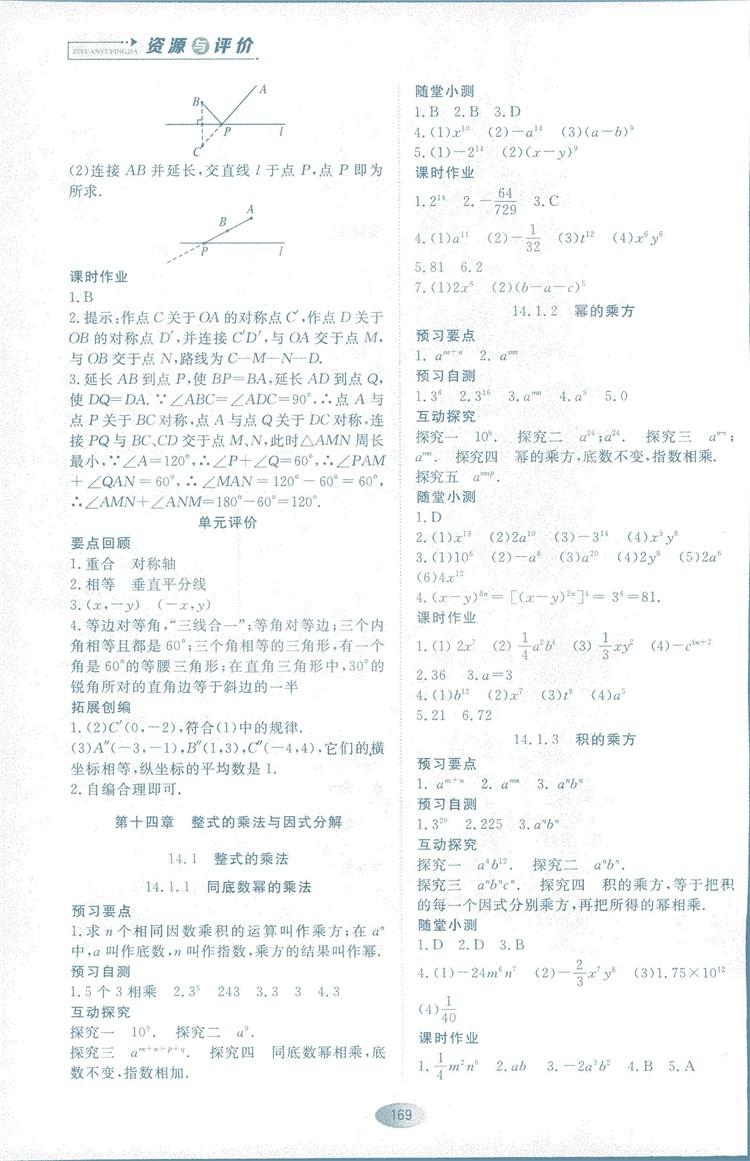 ZIYUANYUPINGJIA 资源与评价
A
B
P
l
C
(2)连接 AB 并延长,交直线 l 于点 P,点 P 即为
所求.
A
B
P
l
课时作业
1.B
2.提示:作点 C 关于 OA 的对称点 C′,作点 D 关于
OB 的对称点 D′,并连接 C′D′,与 OA 交于点 M,
与 OB 交于点 N,路线为 C—M—N—D.
3.延长 AB 到点 P,使 BP=BA,延长 AD 到点 Q,
使 DQ=DA.∵∠ABC=∠ADC=90°,∴点 A 与
点 P 关于 BC 对称,点 A 与点 Q 关于 DC 对称,连
接 PQ 与 BC、CD 交于点 M、N,此时△AMN 周长
最小,∵∠A=120°,∴∠P+∠Q=60°,∴∠PAM
+∠QAN=60°,∴∠MAN=120°-60°=60°,
∴∠AMN+∠ANM=180°-60°=120°.
单元评价
要点回顾
1.重合 对称轴
2.相等 垂直平分线
3.(x,-y) (-x,y)
4.等边对等角,“三线合一”;等角对等边;三个内
角相等且都是 60°;三个角相等的三角形,有一个
角是 60°的等腰三角形;在直角三角形中,30°的
锐角所对的直角边等于斜边的一半
拓展创编
1.(2)C′(0,-2),符合(1)中的规律.
(3)A″(-3,-1),B″(1,3),C″(-4,4),它们的横
坐标相等,纵坐标的平均数是 1.
2.自编合理即可.
第十四章 整式的乘法与因式分解
14.1 整式的乘法
14.1.1 同底数幂的乘法
预习要点
1.求 n 个相同因数乘积的运算叫作乘方;在 aⁿ
中,a 叫作底数,n 叫作指数,乘方的结果叫作幂.
预习自测
1.5 个 3 相乘 2.3⁵ 243 3.3 3 4.3
互动探究
探究一 10⁹. 探究二 a⁹.
探究三 a^{m+n+p+q}. 探究四 同底数幂相乘,底
数不变,指数相加.
随堂小测
1.B 2.B 3.D
4.(1)x¹⁰ (2)-a¹⁴ (3)(a-b)⁹
5.(1)-2¹⁴ (2)(x-y)⁹
课时作业
1.2¹⁴ 2.-64/729 3.C
4.(1)a¹¹ (2)-1/32 (3)t¹² (4)x⁶y⁶
5.81 6.2
7.(1)2x⁶ (2)(b-a-c)⁵
14.1.2 幂的乘方
预习要点
1. a^{m+n} 2. a^{mn}
预习自测
1.3⁶ 2.3¹⁶ 3.a^{mn} 4.a⁹ 5.0
互动探究
探究一 10⁶. 探究二 a²⁴;a²⁴. 探究三
a^{mn}. 探究四 幂的乘方,底数不变,指数相乘.
探究五 a^{mnp}.
随堂小测
1.D
2.(1)x¹³ (2)2a¹⁰ (3)-3¹⁴ (4)x⁹y⁸
3.(1)10⁶ (2)-a⁸ (3)a²⁰ (4)2y⁸ (5)2a⁶
(6)4x¹²
4.(x-y)⁸ⁿ=[(x-y)²ⁿ]⁴=3⁴=81.
课时作业
1.(1) 2x⁷ (2) 1/4a²b⁴ (3) 1/3xy² (4)-c^{4n+2}
2.36 3.a=3
4.(1)b¹² (2)x⁷ (3)t⁹ (4)a⁵
5.21 6.72
14.1.3 积的乘方
预习要点
1. a^{m+n} 2. a^{mn} 3. aⁿbⁿ
预习自测
1.3²⁰ 2.225 3.aⁿbⁿ
互动探究
探究一 a⁴b¹². 探究二 aⁿbⁿ.
探究三 aⁿbⁿcⁿ. 探究四 积的乘方,等于把积
的每一个因式分别乘方,再把所得的幂相乘.
随堂小测
1.D 2.D 3.B
4.(1)-24m⁶n⁷ (2)-2/3x⁷y⁸ (3)1.75×10¹²
(4)1/40
课时作业
1.1/4m²n⁶ 2.ab 3.-2a³b² 4.B 5.A
169